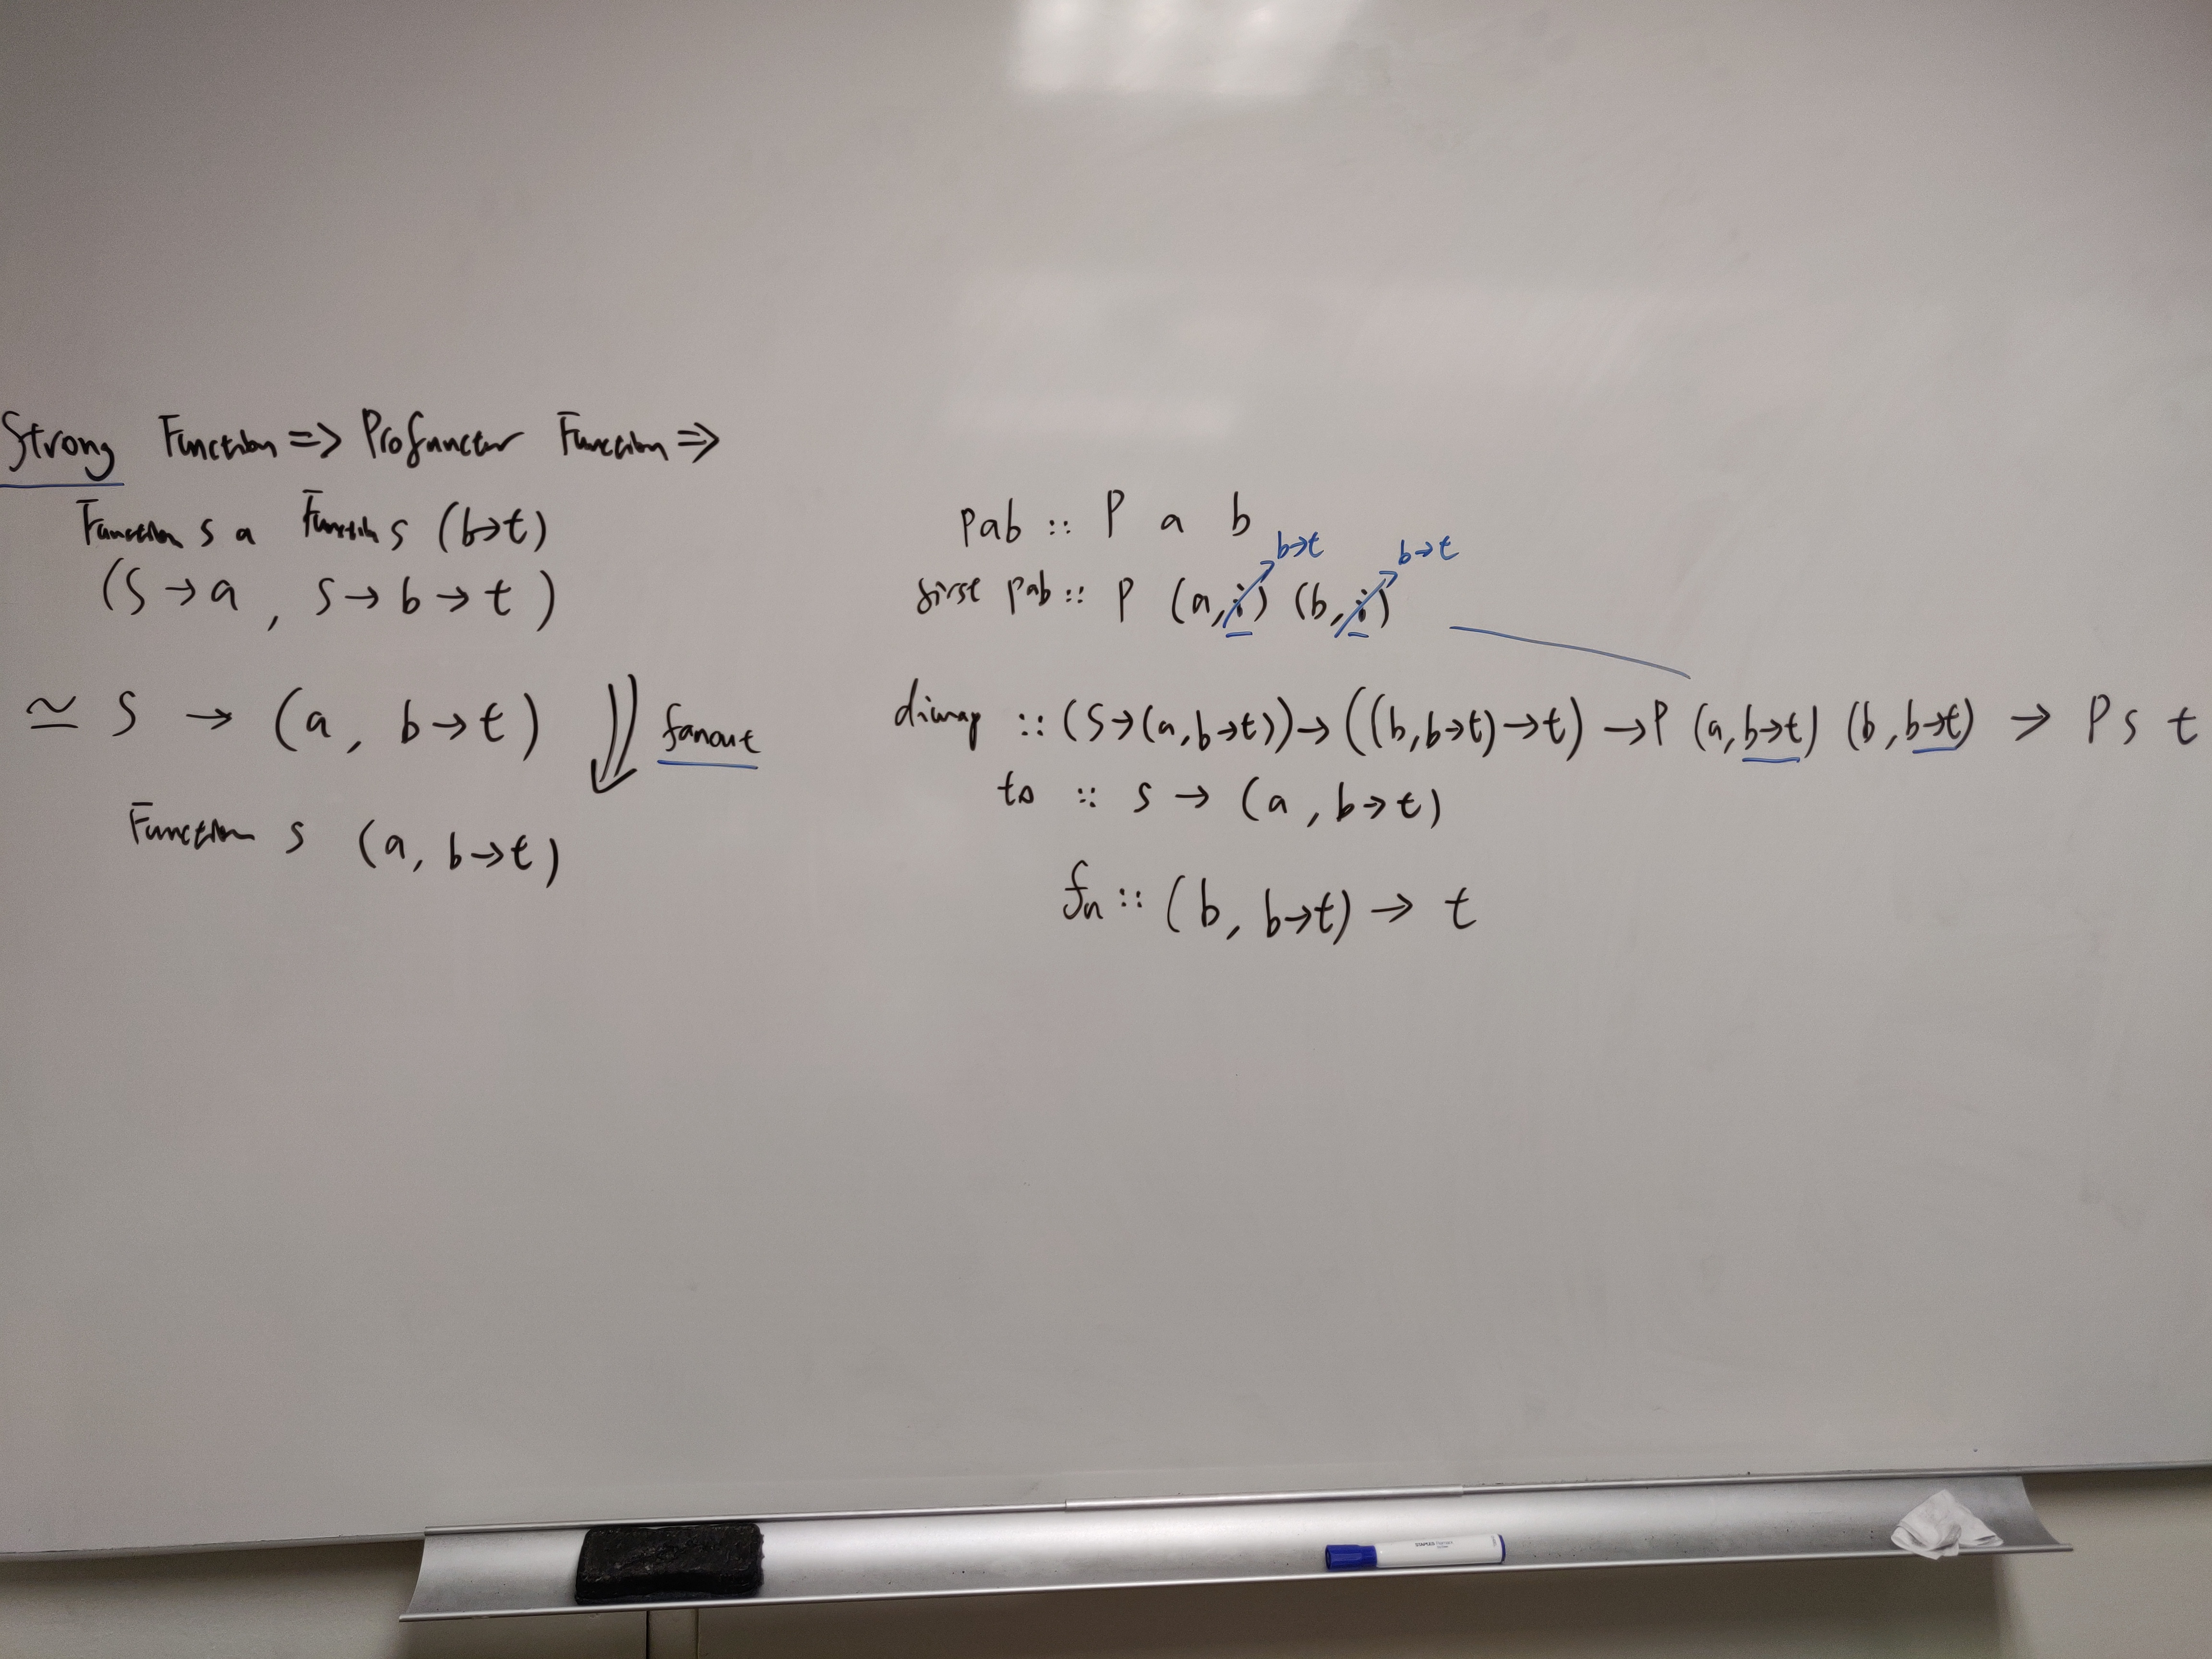 Strong Function => Profunctor Function =>
Function s a Function s (b→t)
(s → a , s → b → t )
≃ s → (a, b→t) fanout
Function s (a, b→t)
pab :: P a b
b→t b→t
first pab :: P (a, i) (b, i)
dimap :: (s→(a,b→t))→((b,b→t)→t) →P (a,b→t) (b,b→t) → P s t
to :: s → (a , b→t)
fn :: (b, b→t) → t
STAPLES